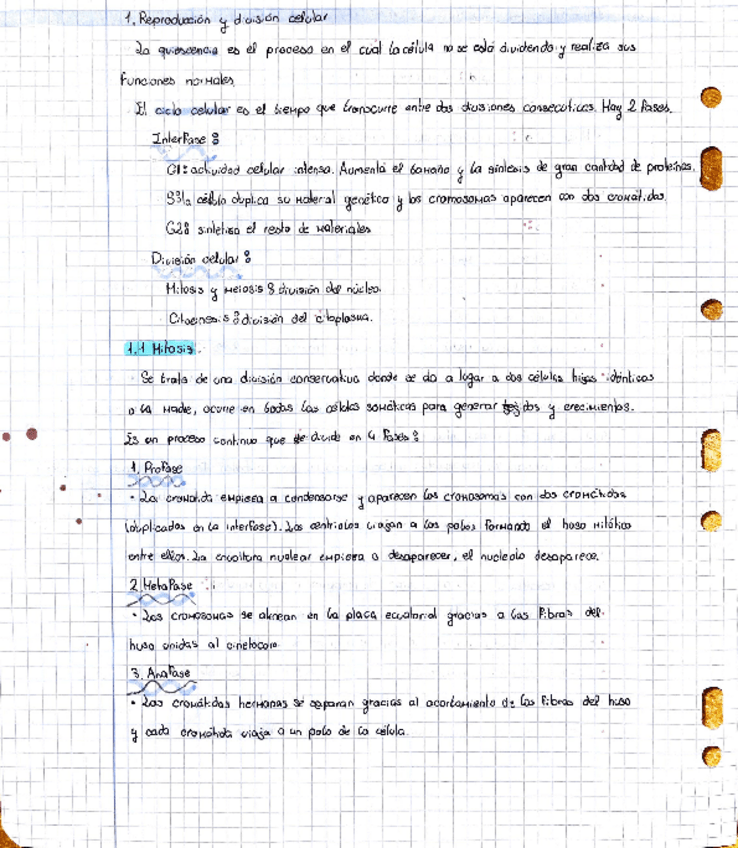 1. Reproducción y división celular
La quiescencia es el proceso en el cual la célula no se está dividendo y realiza sus
funciones normales.
El ciclo celular es el tiempo que transcurre entre dos divisiones consecutivas. Hay 2 fases.
Interfase:
G1: actividad celular intensa. Aumenta el tamaño y la síntesis de gran cantidad de proteínas.
S: la célula duplica su material genético y los cromosomas aparecen con dos cromátidas.
G2: sintetiza el resto de materiales
División celular:
Mitosis y meiosis: división del núcleo.
Citocinesis: división del citoplasma.
1.1 Mitosis.
Se trata de una división conservativa donde se da a lugar a dos células hijas idénticas
a la madre, ocurre en todas las células somáticas para generar tejidos y crecimientos.
Es un proceso continuo que se divide en 4 fases:
1. Profase
• La cromatida empieza a condensarse y aparecen los cromosomas con dos cromátidas
(duplicadas en la interfase). Los centriolos viajan a los polos formando el huso mitótico
entre ellos. La envoltura nuclear empieza a desaparecer, el nucleolo desaparece.
2. Metafase
• Los cromosomas se alinean en la placa ecuatorial gracias a las fibras del
huso unidas al cinetocoro
3. Anafase
• Las cromátidas hermanas se separan gracias al acortamiento de las fibras del huso
y cada cromátida viaja a un polo de la célula.